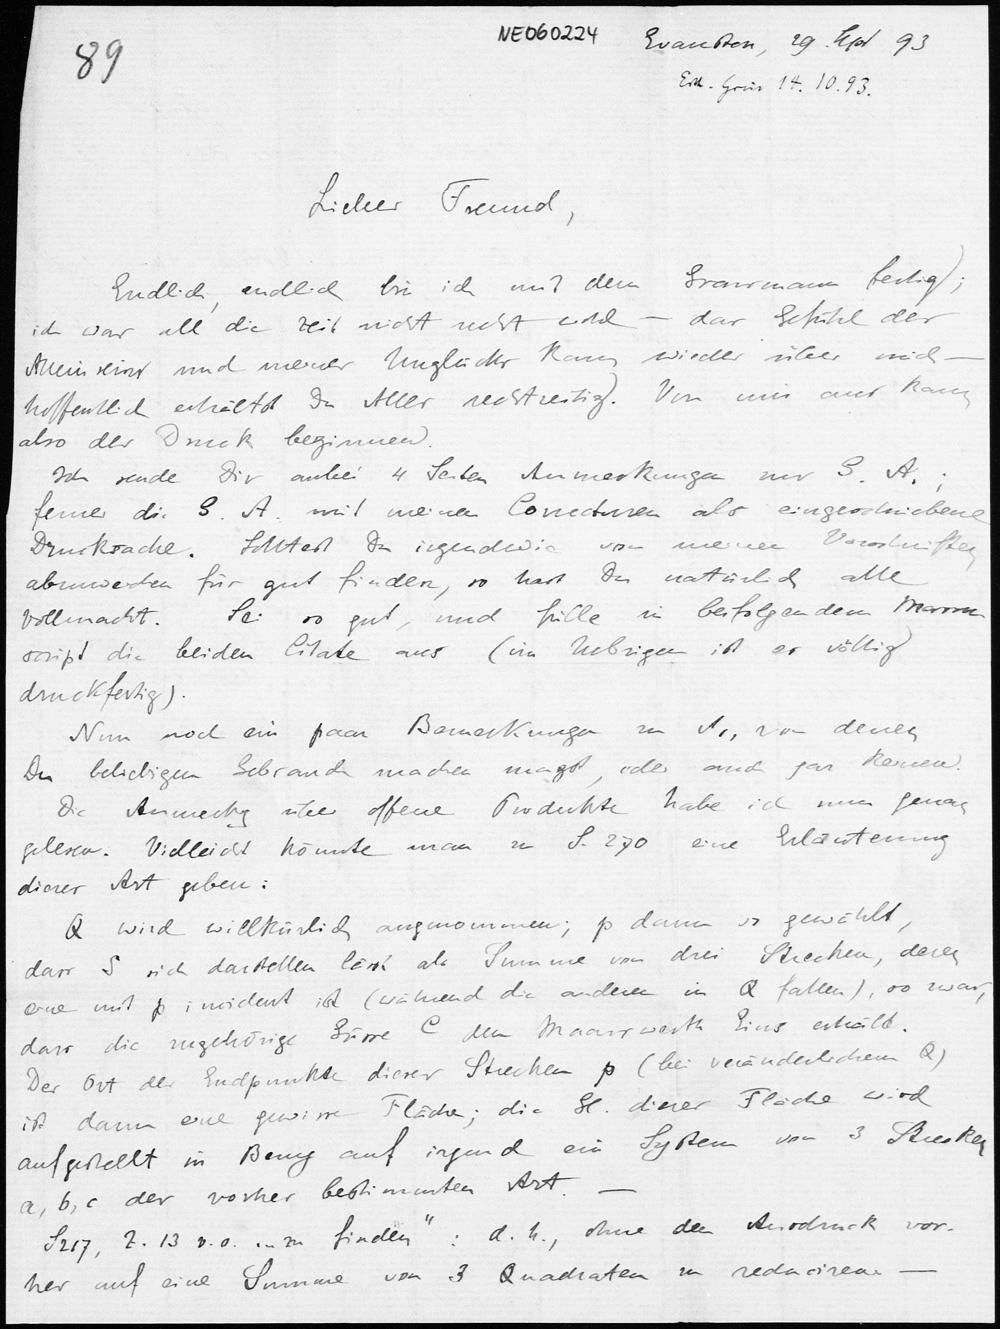 89
NE060224
Evanston, 29. Sept 93
Erh. Greiz 14.10.93.
Lieber Freund,
Endlich, endlich bin ich mit dem Grassmann fertig;
ich war all die Zeit nicht recht wohl — das Gefühl der
Alleinseins und meines Unglücks kam wieder über mich —
hoffentlich erhältst Du Alles rechtzeitig. Von mir aus kann
also der Druck beginnen.
Ich sende Dir anbei 4 Seiten Anmerkungen zur G. A.;
ferner die G. A. mit meinen Correcturen als eingeschriebene
Drucksache. Solltest Du irgendwie von meinen Vorschriften
abzuweichen für gut finden, so hast Du natürlich alle
Vollmacht. Sei so gut, und fülle in beifolgendem Manu
script die beiden Citate aus (im Uebrigen ist es völlig
druckfertig).
Nun noch ein paar Bemerkungen zu A1, von denen
Du beliebigen Gebrauch machen magst, oder auch gar keinen.
Die Anmerkg über offene Produkte habe ich nun genau
gelesen. Vielleicht könnte man zu S. 270 eine Erläuterung
dieser Art geben:
Q wird willkürlich angenommen; p dann so gewählt,
dass S sich darstellen lässt als Summe von drei Strecken, deren
eine mit p incident ist (während die anderen in Q fallen), so zwar,
dass die zugehörige Grösse C den Maasswerth Eins erhält.
Der Ort der Endpunkte dieser Strecken p (bei veränderlichem Q)
ist dann eine gewisse Fläche; die Gl. dieser Fläche wird
aufgestellt in Bezug auf irgend ein System von 3 Strecken
a, b, c der vorher bestimmten Art. —
S217, Z. 13 v. o. „zu finden": d. h., ohne den Ausdruck vor-
her auf eine Summe von 3 Quadraten zu reduciren. —